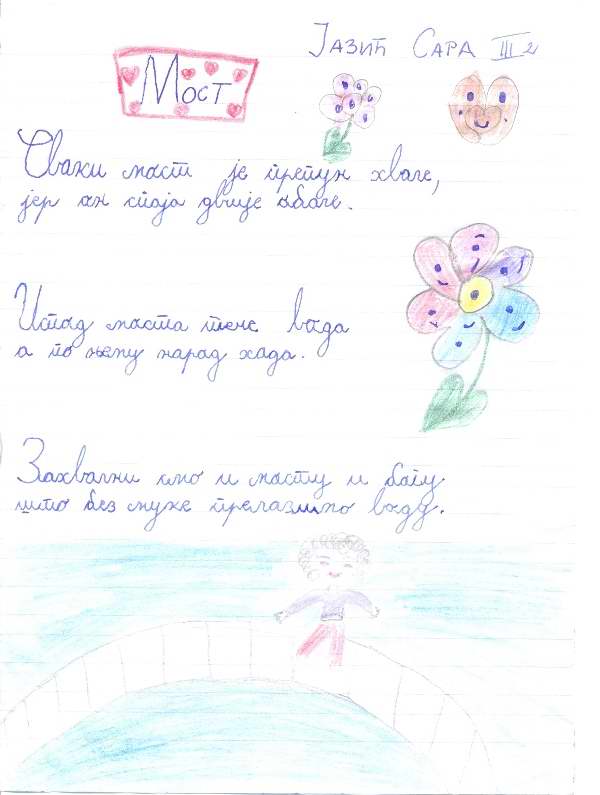 Јазић Сара III2
Мост
Сваки мост је препун хвале,
јер он спаја двије обале.
Испод моста тече вода
а по њему народ хода.
Захвални смо и мосту и богу
што без муке прелазимо воду.